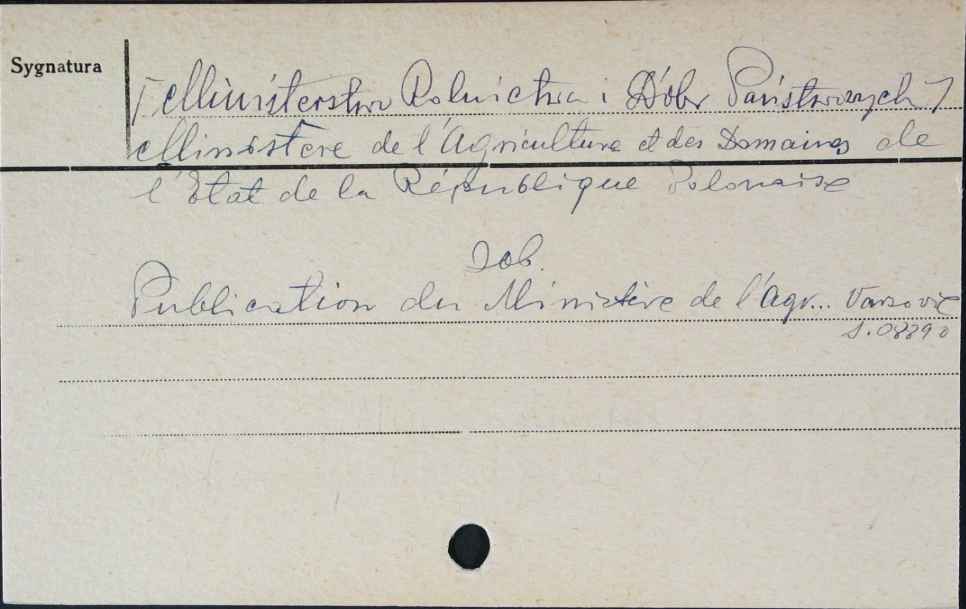 Sygnatura
[Ministerstwo Rolnictwa i Dóbr Państwowych]
Ministère de l'Agriculture et des Domaines de
l'Etat de la République Polonaise
Zob.
Publication du Ministère de l'Agr.. Varsovie
S. 08890